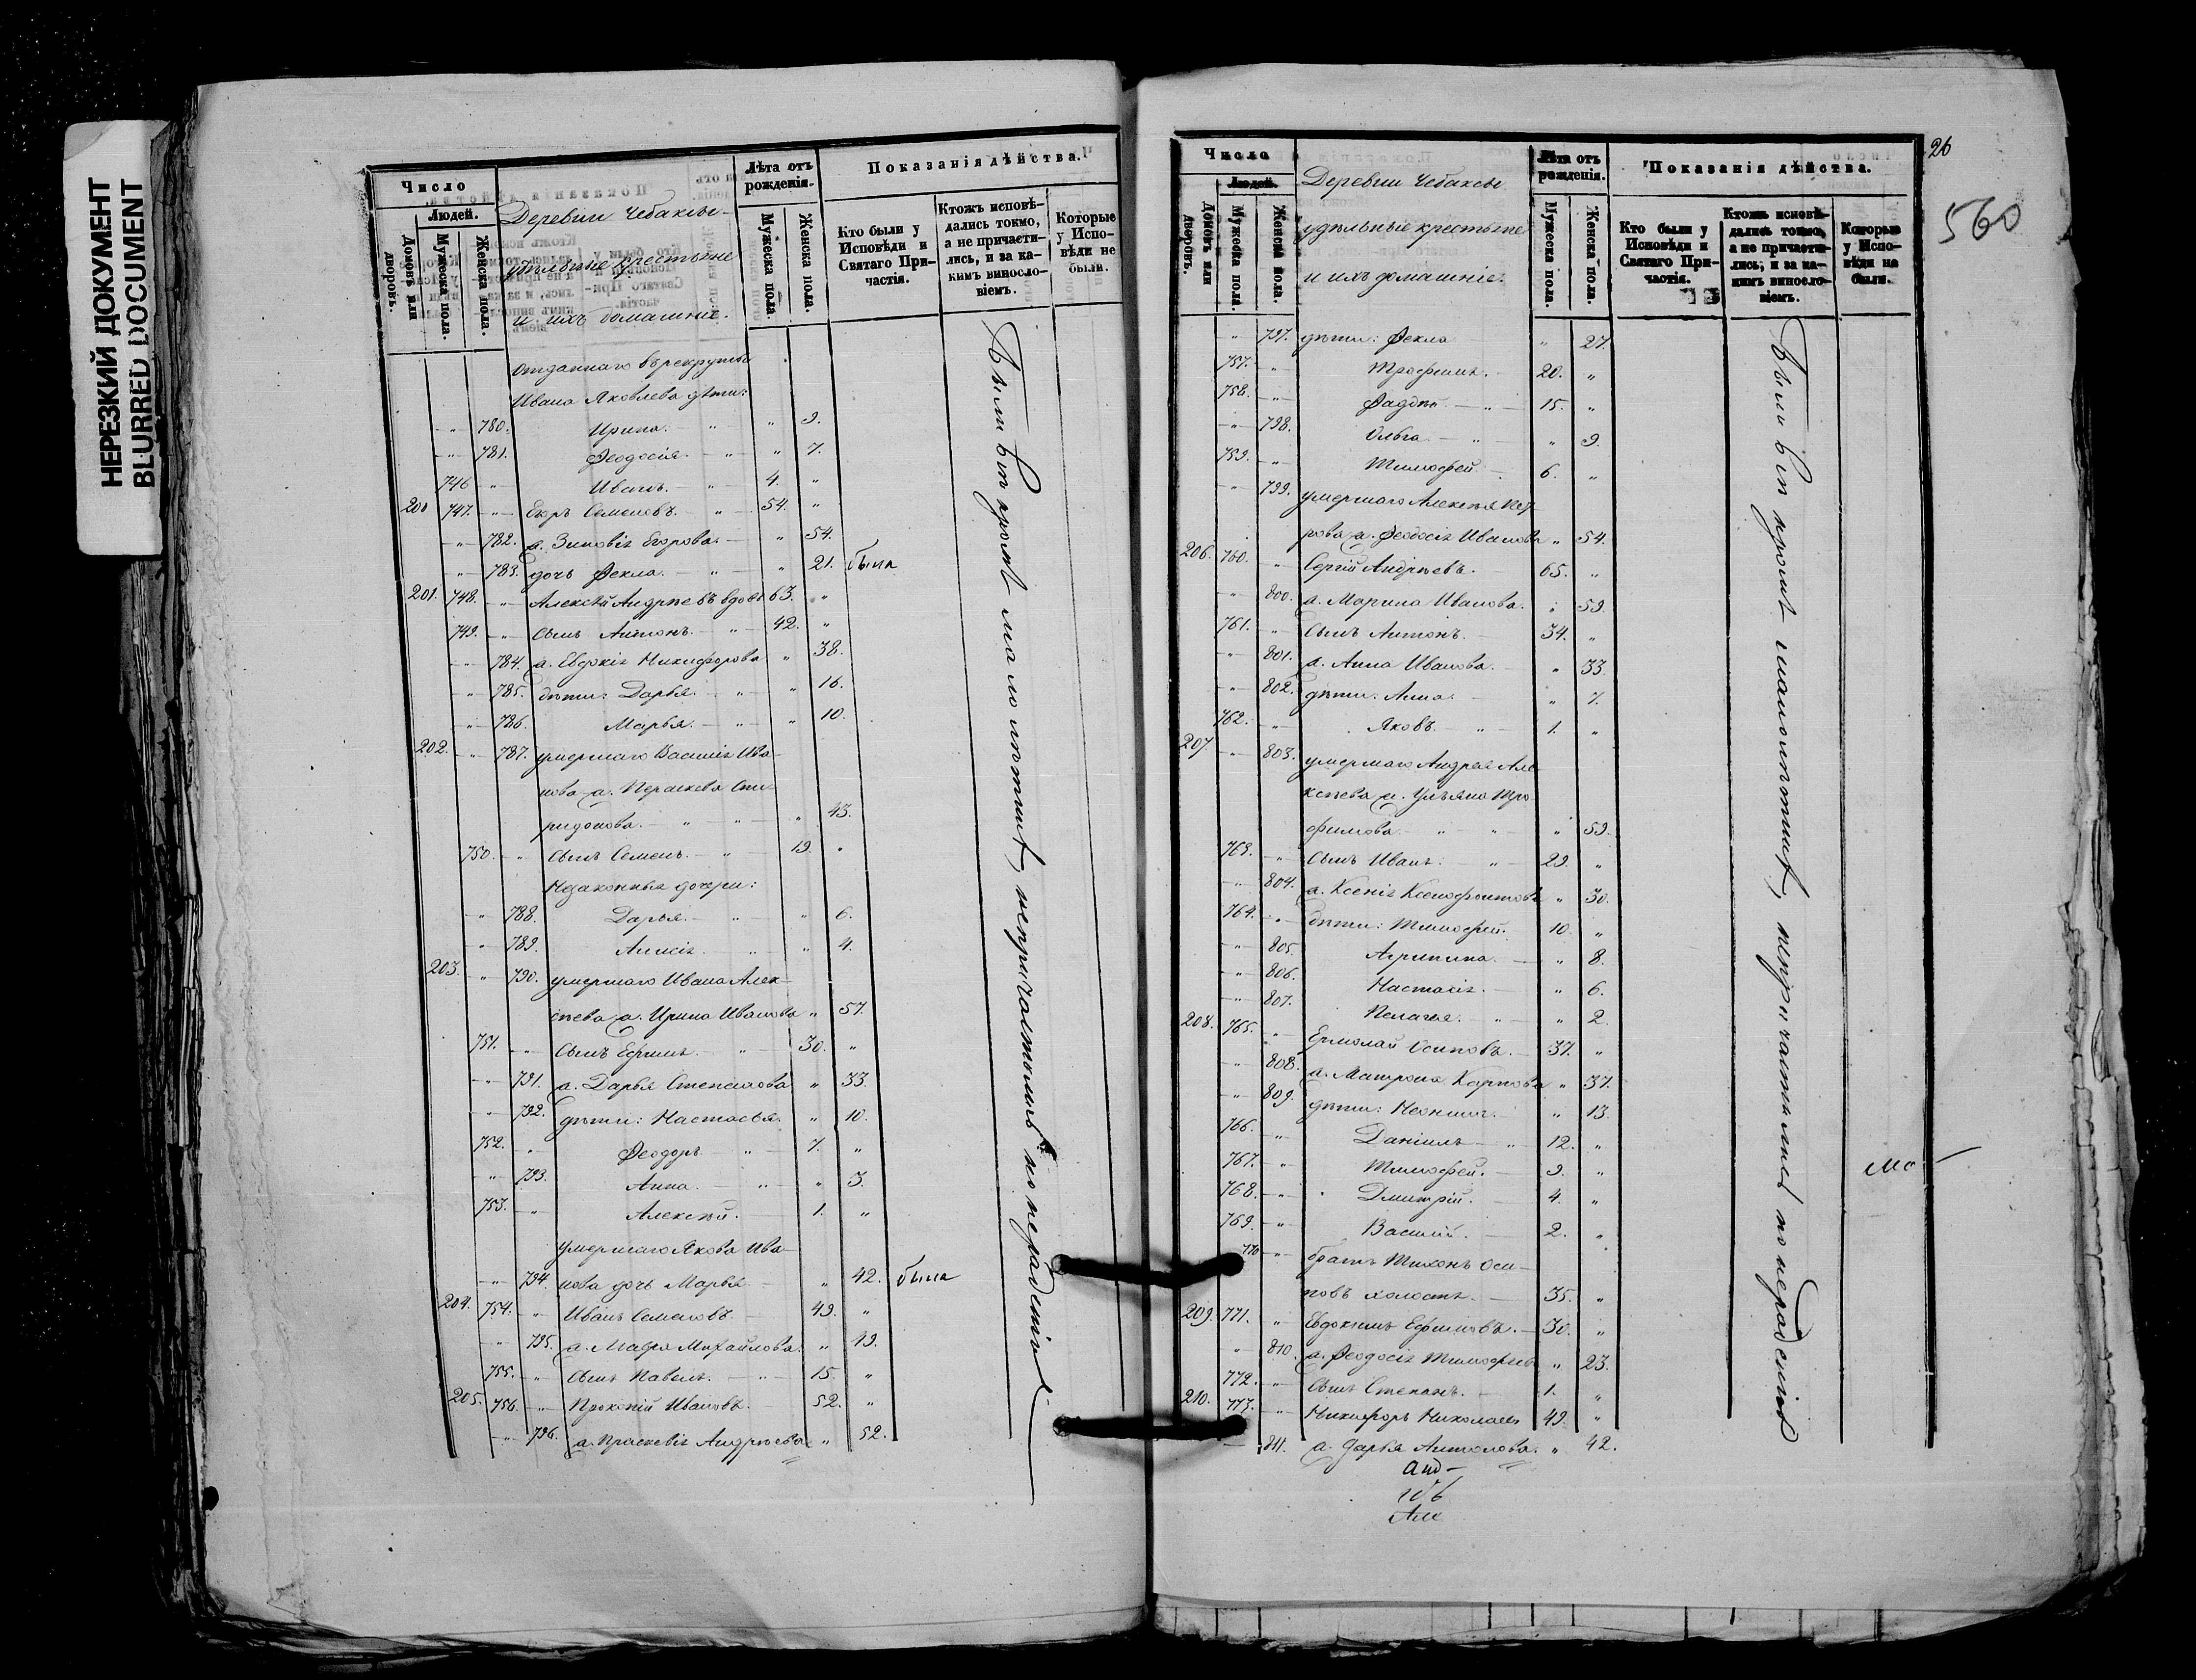 НЕРЕЗКИЙ ДОКУМЕНТ
BLURRED DOCUMENT
Число
Людей.
Домовъ или дворовъ.
Мужеска пола.
Женска пола.
Деревни Чебаксы
удѣльные крестьяне
и ихъ домашніе.
Лѣта отъ рожденія.
Мужеска пола.
Женска пола.
Показанія дѣйства.
Кто были у Исповѣди и Святаго Причастія.
Ктожъ исповѣдались токмо, а не причастились, и за какимъ винословіемъ.
Которые у Исповѣди не были.
отданнаго въ рекруты
Ивана Яковлева дѣти:
„ 780. Ирина. „ 9.
„ 781. Феодосія. „ 7.
746 „ Иванъ. 4. „
200 747. „ Егоръ Семеновъ. 54. „
„ 782. ж. Зиновія Егорова. „ 54.
„ 783. дочь Фекла. „ 21. была
201. 748. „ Алексѣй Андреевъ вдовъ 63. „
749. „ сынъ Антонъ. 42. „
„ 784. ж. Евдокія Никифорова „ 38.
„ 785. дѣти: Дарья. „ 16.
„ 786. Марья. „ 10.
202. „ 787. умершаго Василія Ива-
нова ж. Параскева Спи-
ридонова. „ 43.
750. „ сынъ Семенъ. 19. „
Незаконныя дочери:
„ 788. Дарья. „ 6.
„ 789. Анисія. „ 4.
203. „ 790. умершаго Ивана Алек-
сѣева ж. Ирина Иванова „ 57.
751. „ сынъ Ефимъ. 30. „
„ 791. ж. Дарья Степанова „ 33.
„ 792. дѣти: Настасья. „ 10.
752. „ Феодоръ 7. „
„ 793. Анна. „ 3.
753. „ Алексѣй. 1. „
умершаго Якова Ива-
„ 794. нова дочь Марья „ 42. была
204. 754. „ Иванъ Семеновъ 49. „
„ 795. ж. Марфа Михайлова. „ 49.
755. „ сынъ Павелъ. 15. „
205. 756. „ Прокопій Ивановъ. 52. „
„ 796. ж. Праскевія Андреева „ 52.
Были всѣ кромѣ малолѣтнихъ, непричастились по нерадѣнію
26
560
Число
Людей.
Домовъ или дворовъ.
Мужеска пола.
Женска пола.
Деревни Чебаксы
удѣльные крестьяне
и ихъ домашніе.
Лѣта отъ рожденія.
Мужеска пола.
Женска пола.
Показанія дѣйства.
Кто были у Исповѣди и Святаго Причастія.
Ктожъ исповѣдались токмо, а не причастились, и за какимъ винословіемъ.
Которые у Исповѣди не были.
„ 797. дѣти: Фекла „ 27.
757. „ Трофимъ. 20. „
758. „ Фадѣй. 15. „
„ 798. Ольга. „ 9.
759. „ Тимофей. 6. „
„ 799. умершаго Алексѣя Пет-
рова ж. Феодосія Иванова „ 54.
206. 760. „ Сергій Андреевъ. 65. „
„ 800. ж. Марина Иванова. „ 59.
761. „ сынъ Антонъ. 34. „
„ 801. ж. Анна Иванова. „ 33.
„ 802. дѣти: Анна. „ 7.
762. „ Яковъ. 1. „
207. „ 803. умершаго Андрея Але-
ксѣева ж. Ульяна Тро-
фимова. „ 59.
763. „ сынъ Иванъ. 29. „
„ 804. ж. Ксенія Ксенофонтова „ 30.
764. „ дѣти: Тимофей. 10. „
„ 805. Агрипина. „ 8.
„ 806. Настасія. „ 6.
„ 807. Пелагея. „ 2.
208. 765. „ Ермолай Осиповъ. 37. „
„ 808. ж. Матрона Карпова „ 37.
„ 809. дѣти: „ 13.
766. „ Даніилъ 12. „
767. „ Тимофей. 9. „
768. „ Дмитрій. 4. „
769. „ Василій. 2. „
770 „ братъ Тихонъ Оси-
повъ холостъ. 35. „
209. 771. „ Евдокимъ Ефимовъ. 30. „
„ 810. ж. Феодосія Тимофеев „ 23.
772. „ сынъ Степанъ. 1. „
210. 773. „ Никифоръ Николаевъ 49. „
811. ж. Дарья Антонова. „ 42.
Были всѣ кромѣ малолѣтнихъ, непричастились по нерадѣнію